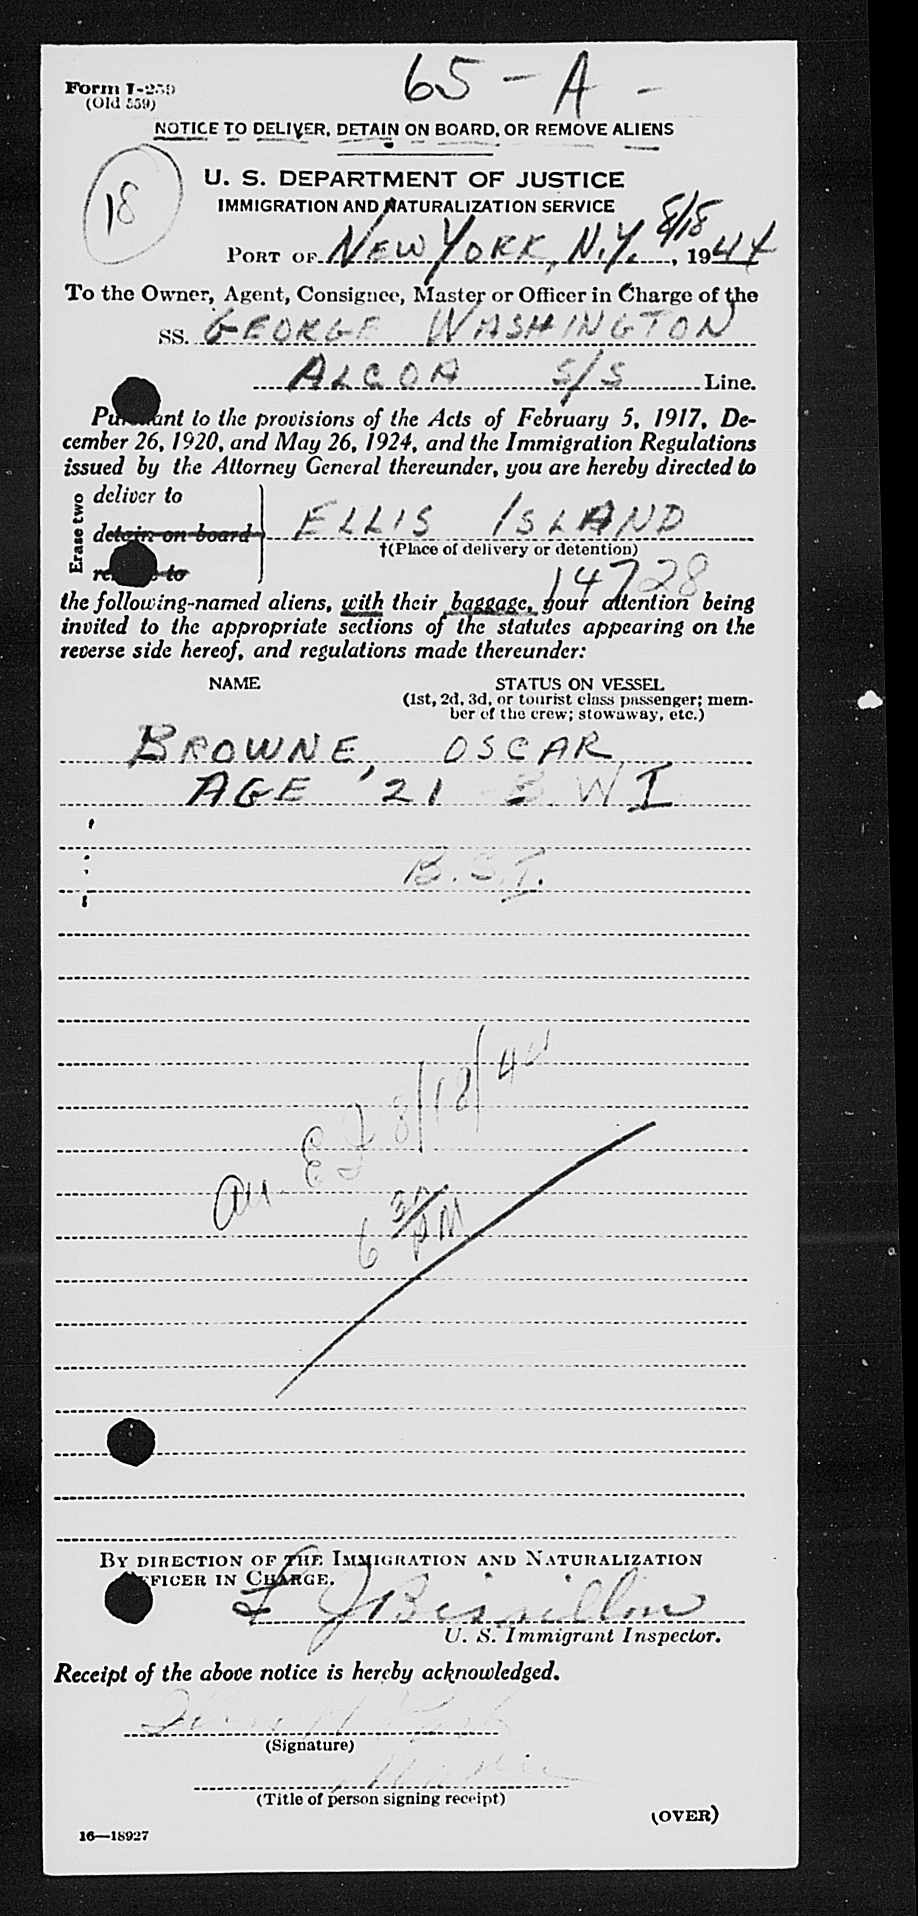 65 - A -
Form I-259
(Old 559)
NOTICE TO DELIVER, DETAIN ON BOARD, OR REMOVE ALIENS
18
U. S. DEPARTMENT OF JUSTICE
IMMIGRATION AND NATURALIZATION SERVICE
PORT OF NEW YORK, N.Y. 8/18, 1944
To the Owner, Agent, Consignee, Master or Officer in Charge of the
SS. GEORGE WASHINGTON
ALCOA S/S Line.
Pursuant to the provisions of the Acts of February 5, 1917, De-
cember 26, 1920, and May 26, 1924, and the Immigration Regulations
issued by the Attorney General thereunder, you are hereby directed to
Erase two
deliver to
detain on board ELLIS ISLAND
†(Place of delivery or detention)
to
14728
the following-named aliens, with their baggage, your attention being
invited to the appropriate sections of the statutes appearing on the
reverse side hereof, and regulations made thereunder:
NAME STATUS ON VESSEL
(1st, 2d, 3d, or tourist class passenger; mem-
ber of the crew; stowaway, etc.)
BROWNE, OSCAR
AGE 21 B W I
B.S.I.
8/18/44
6 30/PM
BY DIRECTION OF THE IMMIGRATION AND NATURALIZATION
OFFICER IN CHARGE.
U. S. Immigrant Inspector.
Receipt of the above notice is hereby acknowledged.
(Signature)
(Title of person signing receipt)
(OVER)
16—18927